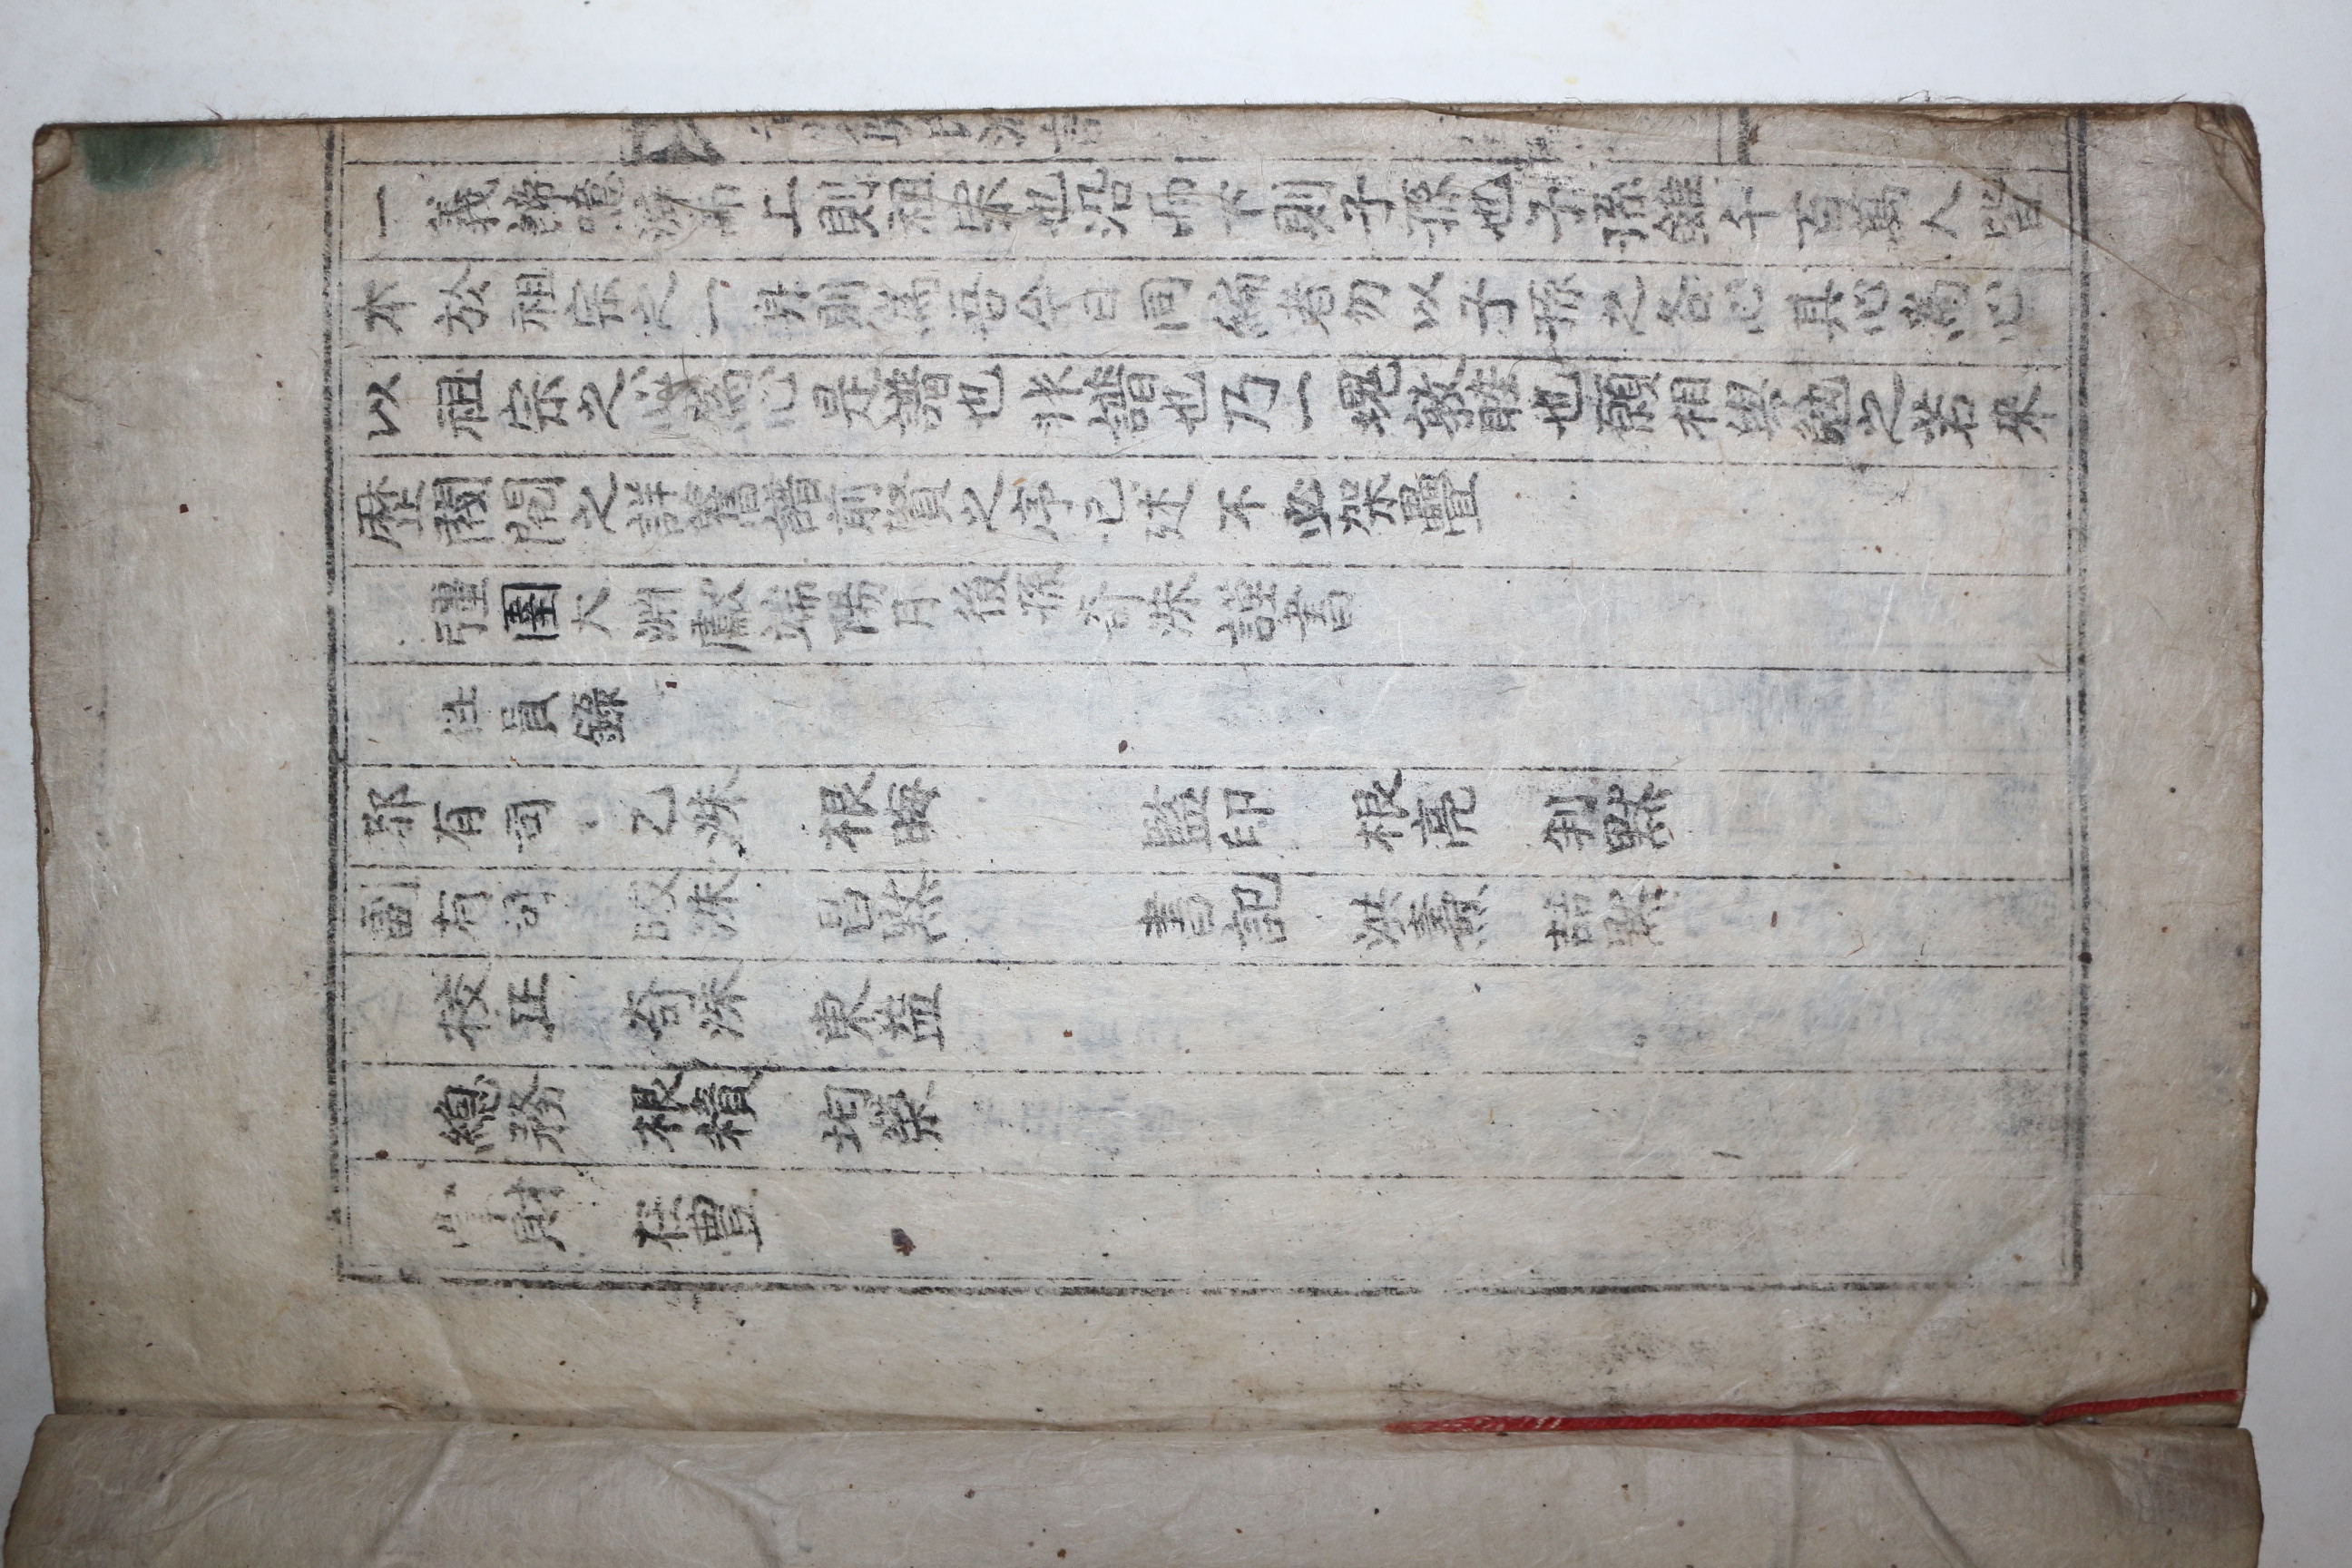 一義諦噫泝而上則祖宗也沿而下則子孫也子孫雖千百萬人皆
本於祖宗之一身則爲吾今日同編者勿以子孫之各心具心爲心
以祖宗之心爲心是譜也非譜也乃一塊敦睦也願相與勉之若來
歷閥閱之詳舊譜前賢之序已述不必架疊
彊圉大淵獻端陽月後孫奇洙謹書
任員錄
都有司 乙洙 根晦 監印 根亮 利默
副有司 昌默 書記 洪熹 喆默
校正 奇洙 東益
總務 根積 均榮
掌財 在豊